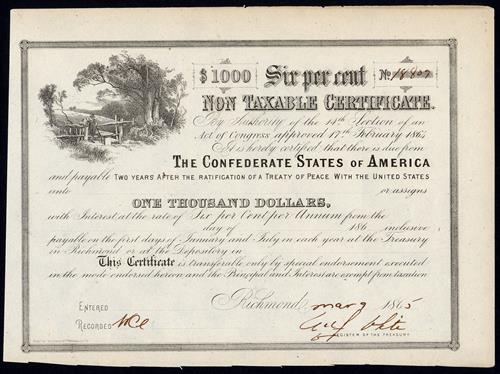 $1000 Six per cent No 18807
NON TAXABLE CERTIFICATE.
By Authority of the 14th Section of an
Act of Congress approved 17th February 1864
It is hereby certified that there is due from
THE CONFEDERATE STATES OF AMERICA
and payable TWO YEARS AFTER THE RATIFICATION OF A TREATY OF PEACE WITH THE UNITED STATES
unto or assigns
ONE THOUSAND DOLLARS,
with Interest at the rate of Six per Cent per Annum from the
day of 186 inclusive
payable on the first days of January and July in each year at the Treasury
in Richmond or at the Depository in
This Certificate is transferable only by special endorsement executed
in the mode endorsed hereon and the Principal and Interest are exempt from taxation
Richmond, Mar 9 1865
ENTERED
RECORDED
REGISTER OF THE TREASURY